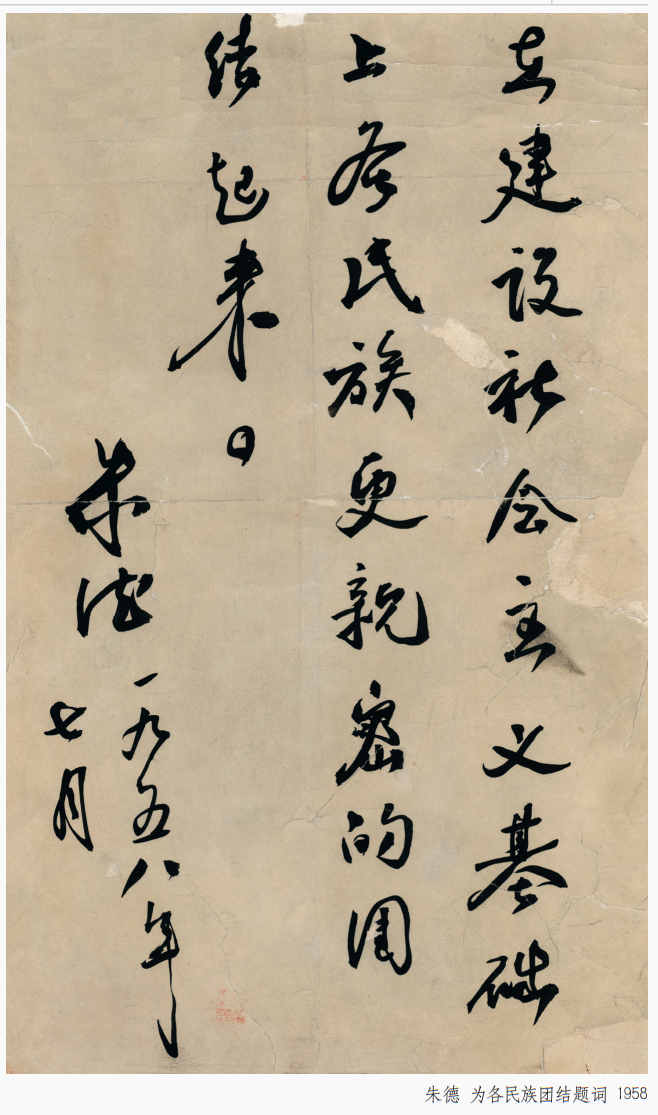 在建设社会主义基础
上各民族更亲密的团
结起来。
朱德
一九五八年
七月
朱德 为各民族团结题词 1958